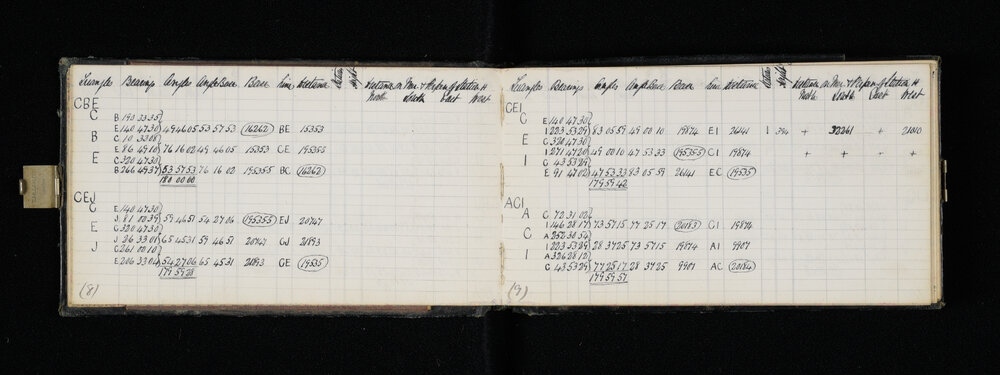 Triangle Bearing Angles Angle Base Base Line Distance
North South East West
CBE
C B 190 33 35
E 140 47 30 49 46 05 53 57 53 16262 BE 15353
B C 10 33 08
E 86 49 10 76 16 02 49 46 05 15353 CE 19535.5
E C 320 47 30
B 266 49 37 53 57 53 76 16 02 19535.5 BC 16262
180 00 00
CEJ
C E 140 47 30
J 81 00 39 59 46 51 54 27 06 19535.5 EJ 20747
E C 320 47 30
J 26 33 01 65 45 31 59 46 51 20747 CJ 21893
J C 261 00 10
E 206 33 04 54 27 06 65 45 31 21893 CE 19535
179 59 28
(8)
Triangle Bearing Angles Angle Base Base Line Distance
North South East West
CEI
C E 140 47 30
I 223 53 29 83 05 59 49 00 10 19874 EI 26141 1 394 + 32261 + 21010
E C 320 47 30
I 271 47 20 49 00 10 47 53 33 19535.5 CI 19874 + + + +
I C 43 53 29
E 91 47 02 47 53 33 83 05 59 26141 EC 19535
179 59 42
ACI
A C 72 31 02
I 146 28 17 73 57 15 77 25 17 20183 CI 19874
C A 252 30 54
I 223 53 29 28 37 25 73 57 15 19874 AI 9907
I A 326 28 12
C 43 53 29 77 25 17 28 37 25 9907 AC 20184
179 59 57
(9)